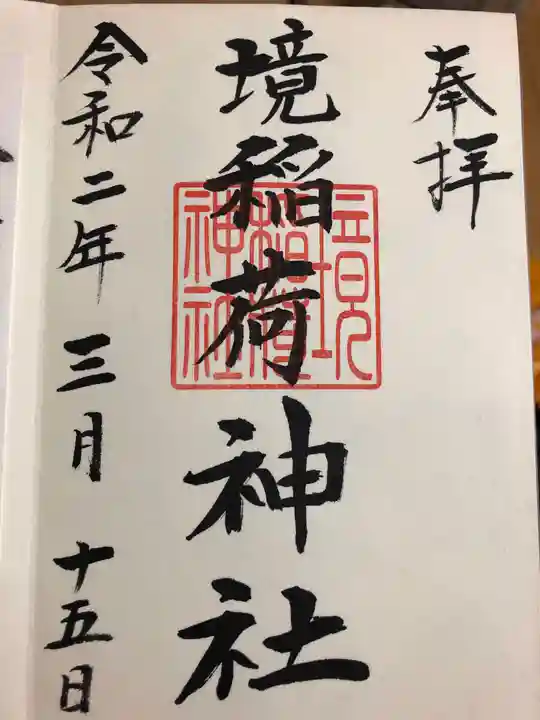 奉拝
境稲荷神社
境稲荷神社
令和二年三月十五日